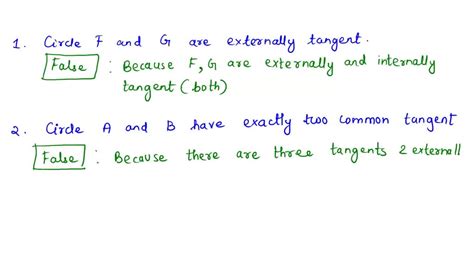 1. Circle F and G are externally tangent.
False : Because F, G are externally and internally
tangent (both)
2. Circle A and B have exactly two common tangent
False : Because there are three tangents 2 externall